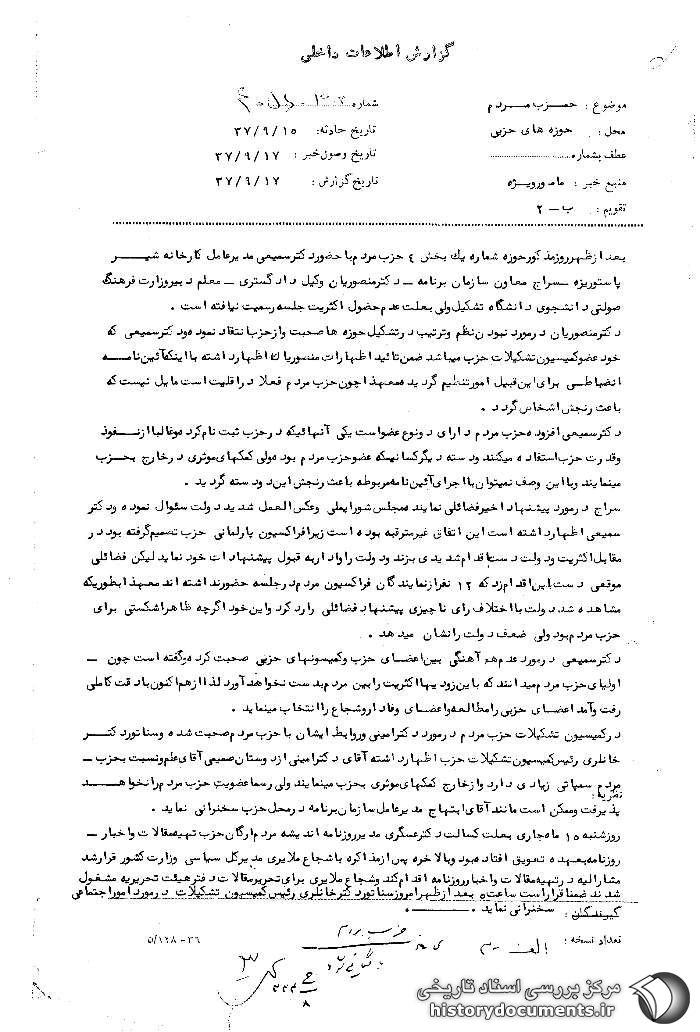 گزارش اطلاعات داخلی
موضوع : حزب مردم
شماره
محل : حوزه های حزبی
تاریخ حادثه: ۳۷/۹/۱۵
عطف بشماره
تاریخ وصول خبر : ۳۷/۹/۱۷
منبع خبر : مامور ویژه
تاریخ گزارش : ۳۷/۹/۱۷
تقویم : ب - ۲
بعد از ظهر روز مذکور حوزه شماره یك بخش ٤ حزب مردم با حضور دکتر سمیعی مدیر عامل کارخانه شیر
پاستوریزه - سراج معاون سازمان برنامه - دکتر منصوریان وکیل دادگستری - معلم دبیر وزارت فرهنگ
صولتی دانشجوی دانشگاه تشکیل ولی بعلت عدم حضول اکثریت جلسه رسمیت نیافته است .
دکتر منصوریان در مورد نبودن نظم و ترتیب در تشکیل حوزه ها صحبت و از حزب انتقاد نموده و دکتر سمیعی که
خود عضو کمیسیون تشکیلات حزب میباشد ضمن تائید اظهارات منصوریان اظهار داشته با اینکه آئین نامه
انضباطی برای این قبیل امور تنظیم گردیده معهذا چون حزب مردم فعلا در اقلیت است مایل نیست که
باعث رنجش اشخاص گردد .
دکتر سمیعی افزوده حزب مردم دارای دو نوع عضو است یکی آنهائیکه در حزب ثبت نام کرده و غالبا از نفوذ
و قدرت حزب استفاده میکنند و دسته دیگر کسانیکه عضو حزب مردم بوده ولی کمکهای موثری در خارج بحزب
مینمایند و با این وصف نمیتوان با اجرای آئین نامه مربوطه باعث رنجش این دو دسته گردید .
سراج در مورد پیشنهاد اخیر فضائلی نماینده مجلس شورایملی و عکس العمل شدید دولت سئوال نموده و دکتر
سمیعی اظهار داشته است این اتفاق غیر مترقبه بوده است زیرا فراکسیون پارلمانی حزب تصمیم گرفته بود در
مقابل اکثریت و دولت دست باقدام شدیدی بزند و دولت را وادار به قبول پیشنهادات خود نماید لیکن فضائلی
موقعی دست باین اقدام زد که ۱۲ نفر از نمایندگان فراکسیون مردم در جلسه حضور نداشته اند معهذا بطوریکه
مشاهده شد دولت با اختلاف رای ناچیزی پیشنهاد فضائلی را رد کرد و این خود اگرچه ظاهرا شکستی برای
حزب مردم بود ولی ضعف دولت را نشان میدهد .
دکتر سمیعی در مورد عدم هم آهنگی بین اعضای حزب و کمیسونهای حزبی صحبت کرده و گفته است چون -
اولیای حزب مردم میدانند که با این زودیها اکثریت را بین مردم بدست نخواهد آورد لذا از هم اکنون با دقت کاملی
رفت و آمد اعضای حزبی را مطالعه و اعضای وفادار و شجاع را انتخاب مینماید .
در کمیسیون تشکیلات حزب مردم در مورد دکتر امینی و روابط ایشان با حزب مردم صحبت شده و سناتور دکتر
خانلری رئیس کمیسیون تشکیلات حزب اظهار داشته آقای دکتر امینی از دوستان صمیمی آقای علم و نسبت بحزب -
مردم سمپاتی زیادی دارد و از خارج کمکهای موثری بحزب مینمایند ولی رسما عضویت حزب مردم را نخواهد
نظریه :
پذیرفت و ممکن است مانند آقای ابتهاج مدیر عامل سازمان برنامه در محل حزب سخنرانی نماید .
روز شنبه ۱۵ ماه جاری بعلت کسالت دکتر عسگری مدیر روزنامه اندیشه مردم ارگان حزب تهیه مقالات و اخبار -
روزنامه بعهده تعویق افتاده بود و بالاخره پس از مذاکره با شجاع ملایری مدیر کل سیاسی وزارت کشور قرار شد
مشارالیه در تهیه مقالات و اخبار روزنامه اقدام کند و شجاع ملایری برای تحریر مقالات در دفتر هیئت تحریریه مشغول
شدند ضمنا قرار است ساعت ۵ بعد از ظهر امروز سناتور دکتر خانلری رئیس کمیسیون تشکیلات در مورد امور اجتماعی
گیرندگان : سخنرانی نماید .
تعداد نسخه :
۵/۱۲۸-۳۶
الف -
حزب مردم
مرکز بررسی اسناد تاریخی
historydocuments.ir